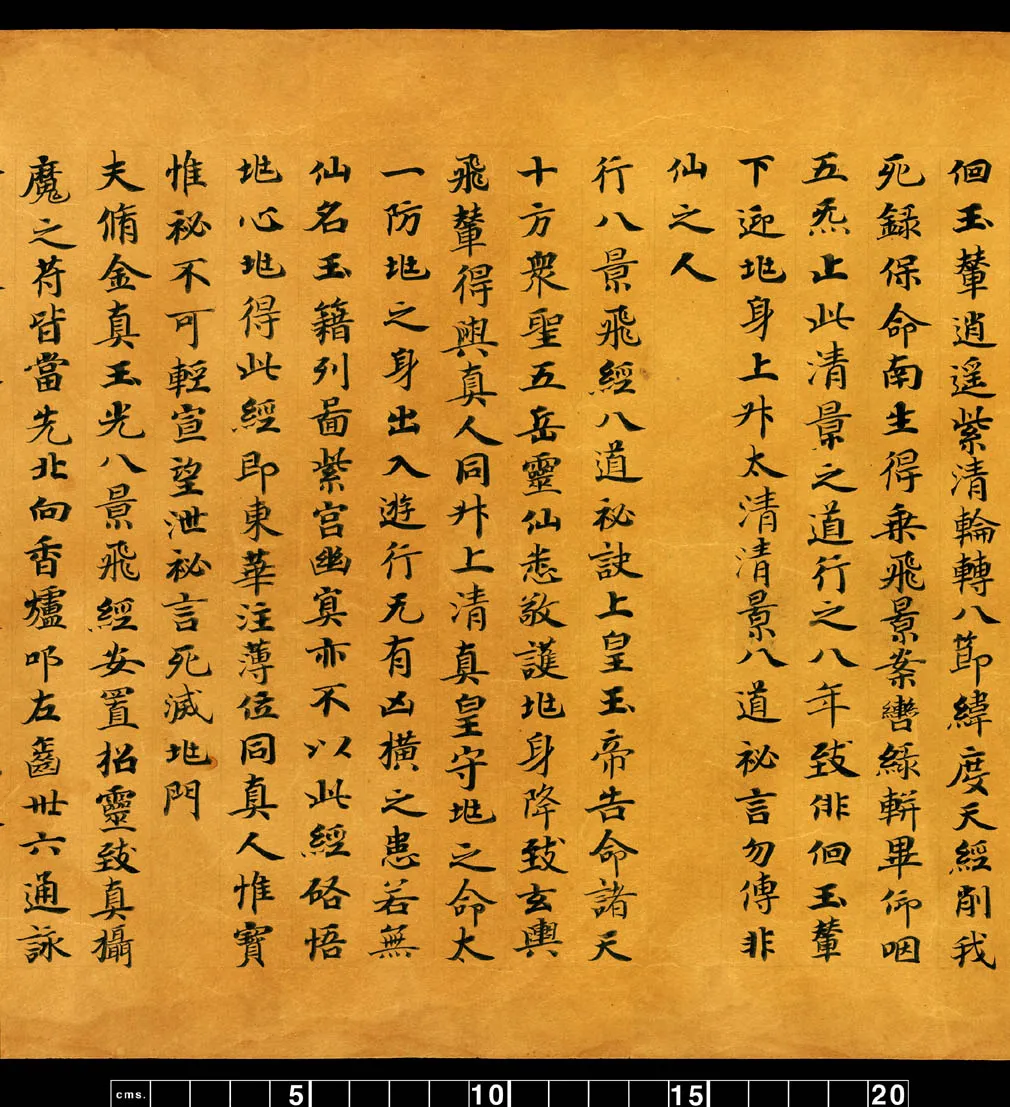 佪玉輦逍遥紫清輪轉八節緯度天經削我
死録保命南生得乗飛景案轡緑軿畢仰咽
五炁止此清景之道行之八年致俳佪玉輦
下迎兆身上升太清清景八道祕言勿傳非
仙之人
行八景飛經八道祕訣上皇玉帝告命諸天
十方衆聖五岳靈仙悉敬護兆身降致玄輿
飛輦得與真人同升上清真皇守兆之命太
一防兆之身出入遊行无有凶横之患若無
仙名玉籍列啚紫宫幽冥亦不以此經啓悟
兆心兆得此經即東華注薄位同真人惟寶
惟祕不可輕宣望泄祕言死滅兆門
夫脩金真玉光八景飛經安置招靈致真攝
魔之苻皆當先北向香爐叩左齒卅六通詠
cms. 5 10 15 20